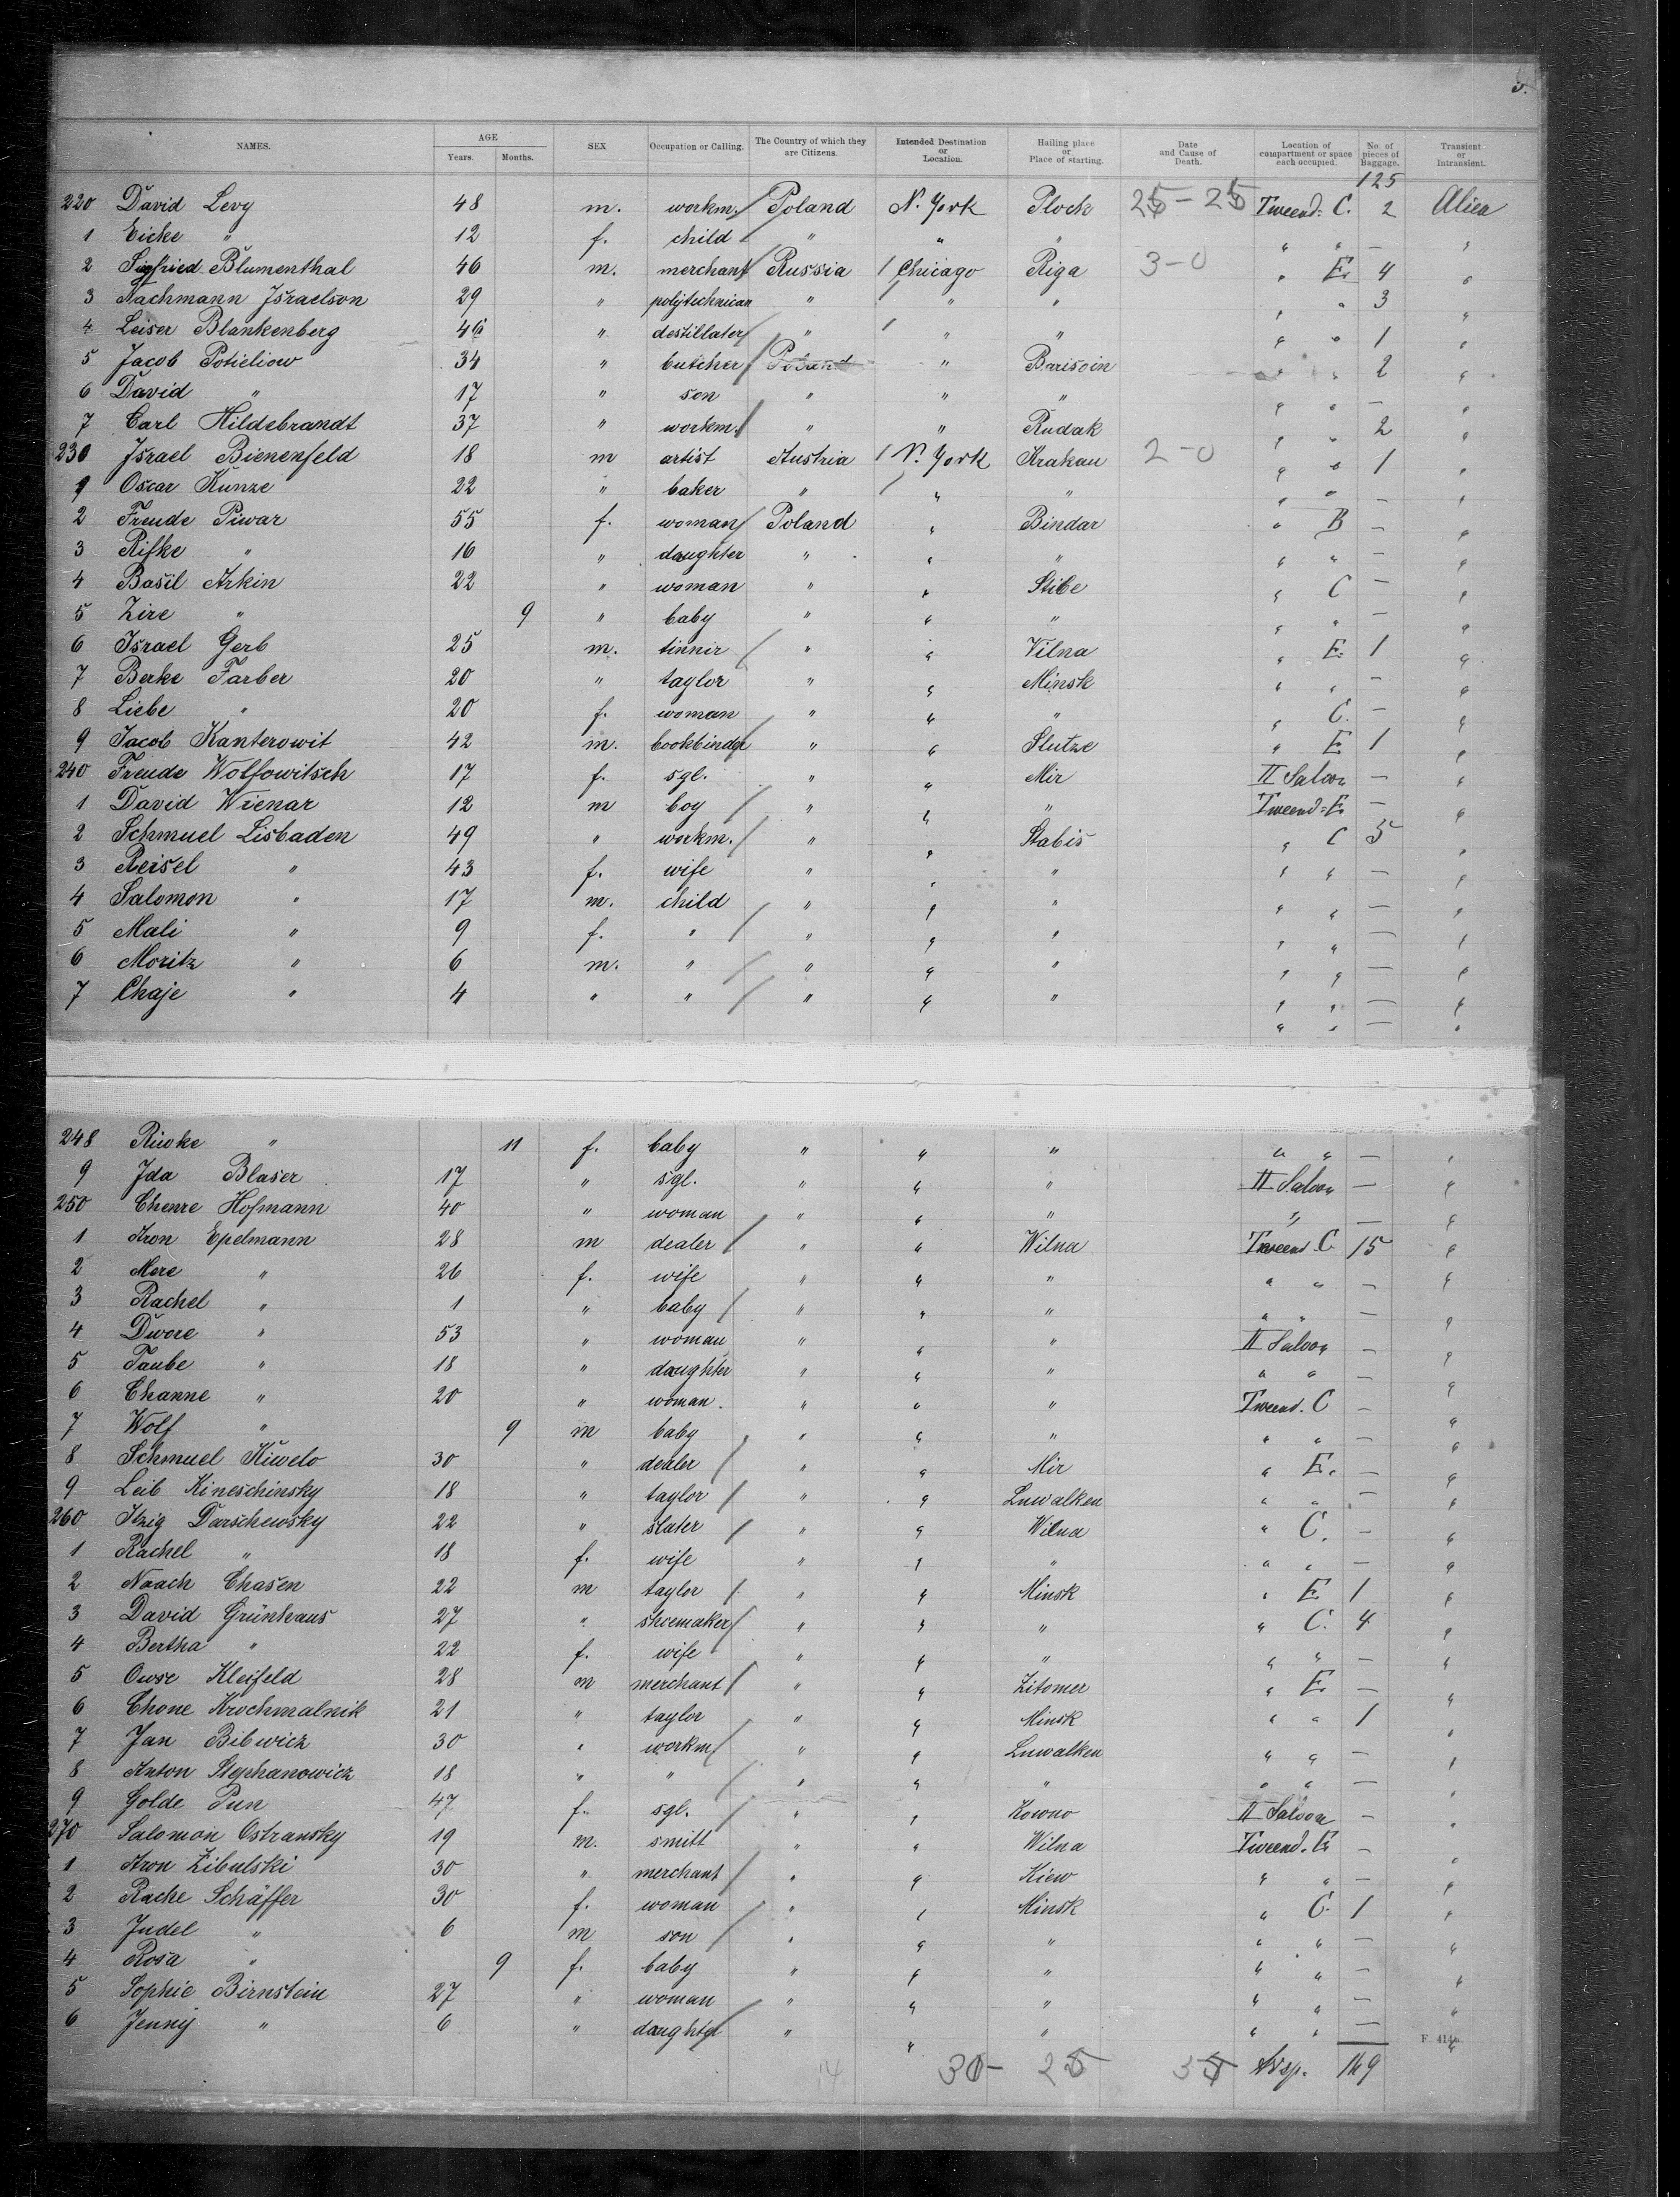 5.
NAMES. AGE Years. Months. SEX Occupation or Calling. The Country of which they are Citizens. Intended Destination or Location. Hailing place or Place of starting. Date and Cause of Death. Location of compartment or space each occupied. No. of pieces of Baggage. Transient or Intransient.
125
220 David Levy 48 m. workm. Poland N. York Plock 25 - 25 Tweend: C. 2 Alien
1 Eicke " 12 f. child " " " " " — "
2 Siegfried Blumenthal 46 m. merchant Russia Chicago Riga 3-0 " E. 4 "
3 Nachmann Israelson 29 " polytechnican " " " " " 3 "
4 Leiser Blankenberg 46 " destillater " " " " " 1 "
5 Jacob Potieliow 34 " butcher Poland " Brrisoin " " 2 "
6 David " 17 " son " " " " " — "
7 Carl Hildebrandt 37 " workm. " " Rudak " " 2 "
230 Israel Bienenfeld 18 m artist Austria N. York Krakau 2-0 " " 1 "
1 Oscar Kunze 22 " baker " " " " " — "
2 Freude Piwar 55 f. woman Poland " Bindar " B — "
3 Rifke " 16 " daughter " " " " " — "
4 Basil Arkin 22 " woman " " Stibe " C — "
5 Zire " 9 " baby " " " " " — "
6 Israel Gerb 25 m. tinnir " " Vilna " E. 1 "
7 Berke Farber 20 " taylor " " Minsk " " — "
8 Liebe " 20 f. woman " " " " C. — "
9 Jacob Kanterowit 42 m. bookbinder " " Slutze " E 1 "
240 Freude Wolfowitsch 17 f. sgl. " " Mir II Saloon — "
1 David Wienar 12 m boy " " " Tweend=E. — "
2 Schmuel Lisbaden 49 " workm. " " Stabis " C 5 "
3 Reisel " 43 f. wife " " " " " — "
4 Salomon " 17 m. child " " " " " — "
5 Mali " 9 f. " " " " " " — "
6 Moritz " 6 m. " " " " " " — "
7 Chaje " 4 " " " " " " " — "
" " — "
248 Riwke " 11 f. baby " " " " " — "
9 Ida Blaser 17 " sgl. " " " II Saloon — "
250 Chenre Hofmann 40 " woman " " " " — "
1 Aron Epelmann 28 m dealer " " Wilna Tweend C 15 "
2 Mere " 26 f. wife " " " " " — "
3 Rachel " 1 " baby " " " " " — "
4 Dwore " 53 " woman " " " II Saloon — "
5 Taube " 18 " daughter " " " " " — "
6 Channe " 20 " woman. " " " Tweend. C — "
7 Wolf " 9 m baby " " " " " — "
8 Schmuel Kiwelo 30 " dealer " " Mir " E. — "
9 Leib Kineschinsky 18 " taylor " " Luwalken " " — "
260 Itzig Darschewsky 22 " slater " " Wilna " C. — "
1 Rachel " 18 f. wife " " " " " — "
2 Noach Chasen 22 m taylor " " Minsk " E 1 "
3 David Grünhaus 27 " shoemaker " " " " C. 4 "
4 Bertha " 22 f. wife " " " " " — "
5 Owse Kleifeld 28 m merchant " " Zitomer " E — "
6 Chone Krochmalnik 21 " taylor " " Minsk " " 1 "
7 Jan Bilewicz 30 " workm " " Luwalken " " — "
8 Anton Stephanowicz 18 " " " " " " " — "
9 Golde Pun 47 f. sgl. " " Kowno II Saloon — "
270 Salomon Ostransky 19 m. smitt " " Wilna Tweend. E — "
1 Aron Zibulski 30 " merchant " " Kiew " " — "
2 Rache Schäffer 30 f. woman " " Minsk " C. 1 "
3 Judel " 6 m son " " " " " — "
4 Rosa " 9 f. baby " " " " " — "
5 Sophie Birnstein 27 " woman " " " " " — "
6 Jenny " 6 " daughter " " " " " — "
F. 414b.
14 30- 25 35 169